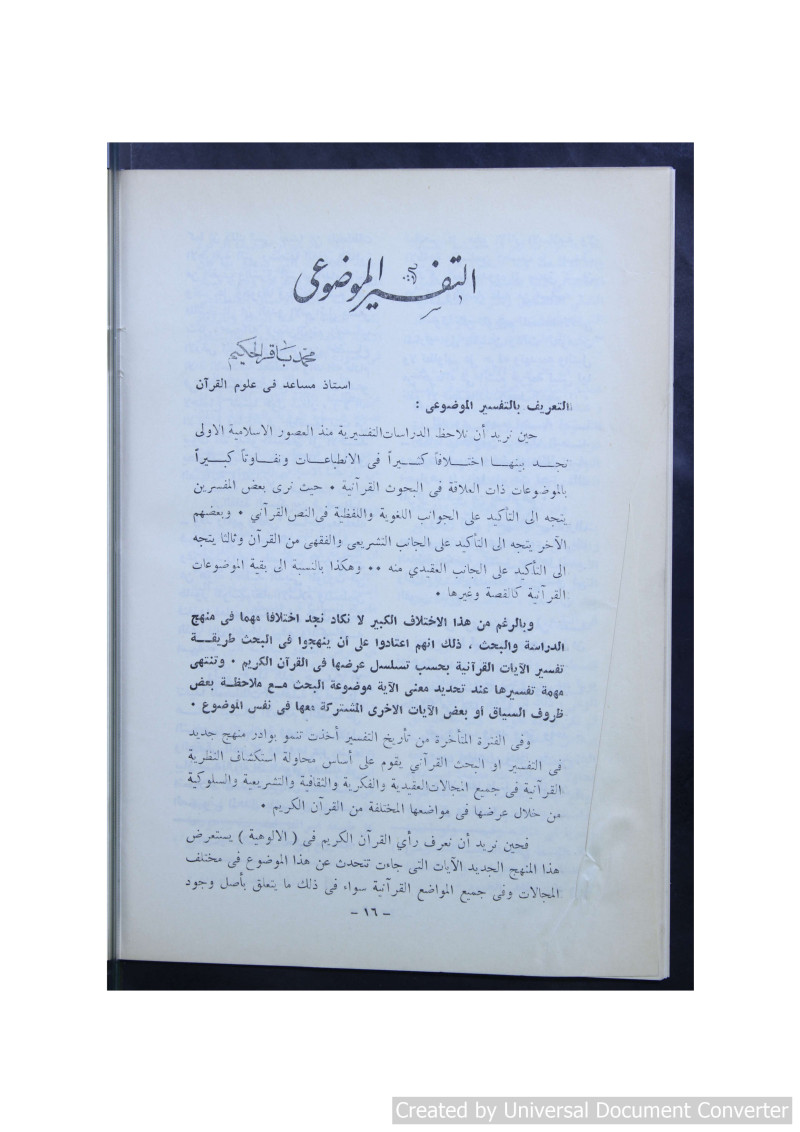 التفسير الموضوعى
محمد باقر الحكيم
استاذ مساعد فى علوم القرآن
التعريف بالتفسير الموضوعى :
حين نريد أن نلاحظ الدراسات التفسيرية منذ العصور الاسلامية الاولى
نجــد بينهــا اختــلافاً كثــيراً فى الانطباعــات وتفــاوتاً كبــيراً
بالموضوعات ذات العلاقة فى البحوث القرآنية • حيث نرى بعض المفسرين
يتجه الى التأكيد على الجوانب اللغوية واللفظية فى النص القرآني • وبعضهم
الآخر يتجه الى التأكيد على الجانب التشريعى والفقهى من القرآن وثالثا يتجه
الى التأكيد على الجانب العقيدي منه •• وهكذا بالنسبة الى بقية الموضوعات
القرآنية كالقصة وغيرها •
وبالرغم من هذا الاختلاف الكبير لا نكاد نجد اختلافا مهما فى منهج
الدراسة والبحث ، ذلك انهم اعتادوا على أن ينهجوا فى البحث طريقــة
تفسير الآيات القرآنية بحسب تسلسل عرضها فى القرآن الكريم • وتنتهى
مهمة تفسيرها عند تحديد معنى الآية موضوعة البحث مـع ملاحظـة بعض
ظروف السياق أو بعض الآيات الاخرى المشتركة معها فى نفس الموضوع •
وفى الفترة المتأخرة من تأريخ التفسير أخذت تنمو بوادر منهج جديد
فى التفسير او البحث القرآني يقوم على أساس محاولة استكشاف النظرية
القرآنية فى جميع المجالات العقيدية والفكرية والثقافية والتشريعية والسلوكية
من خلال عرضها فى مواضعها المختلفة من القرآن الكريم •
فحين نريد أن نعرف رأي القرآن الكريم فى ( الالوهية ) يستعرض
هذا المنهج الجديد الآيات التى جاءت تتحدث عن هذا الموضوع فى مختلف
المجالات وفى جميع المواضع القرآنية سواء فى ذلك ما يتعلق بأصل وجود
- ١٦ -
Created by Universal Document Converter